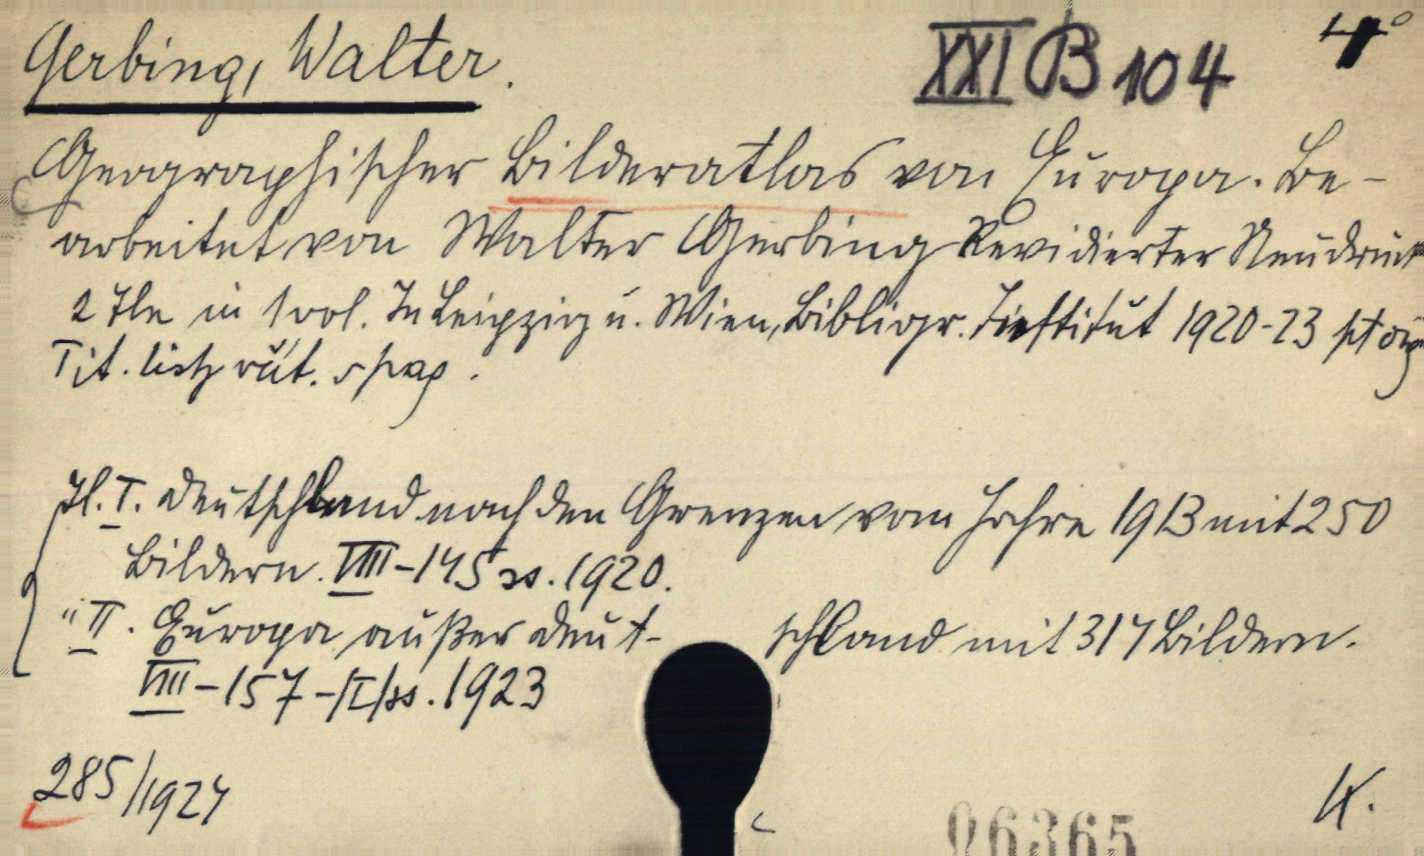 Gerbing, Walter.
XXI B 104
4°
Geographischer Bilderatlas von Europa. Be-
arbeitet von Walter Gerbing Revidierter Neudruck
2 Tle in 1 vol. In Leipzig u. Wien, Bibliogr. Institut 1920-23
Tit.
Tl. I. Deutschland nach den Grenzen vom Jahre 1913 mit 250
Bildern. VIII-145 ss. 1920.
" II. Europa außer Deut- schland mit 317 Bildern.
VIII-157-/I/ss. 1923
285/1927
06365
K.